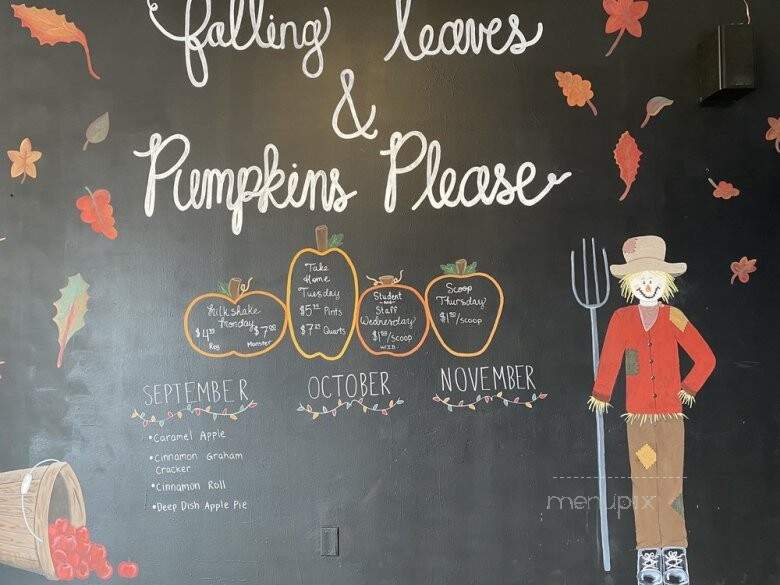 falling leaves
&
Pumpkins Please
Milkshake
Monday
$4.00 $7.00
Reg Monster
Take
Home
Tuesday
$5 Pints
$7 Quarts
Student
and
Staff
Wednesday
$1 /scoop
w/I.D.
Scoop
Thursday
$1 /scoop
SEPTEMBER
•Caramel Apple
•Cinnamon Graham
Cracker
•Cinnamon Roll
•Deep Dish Apple Pie
OCTOBER
NOVEMBER
menupix